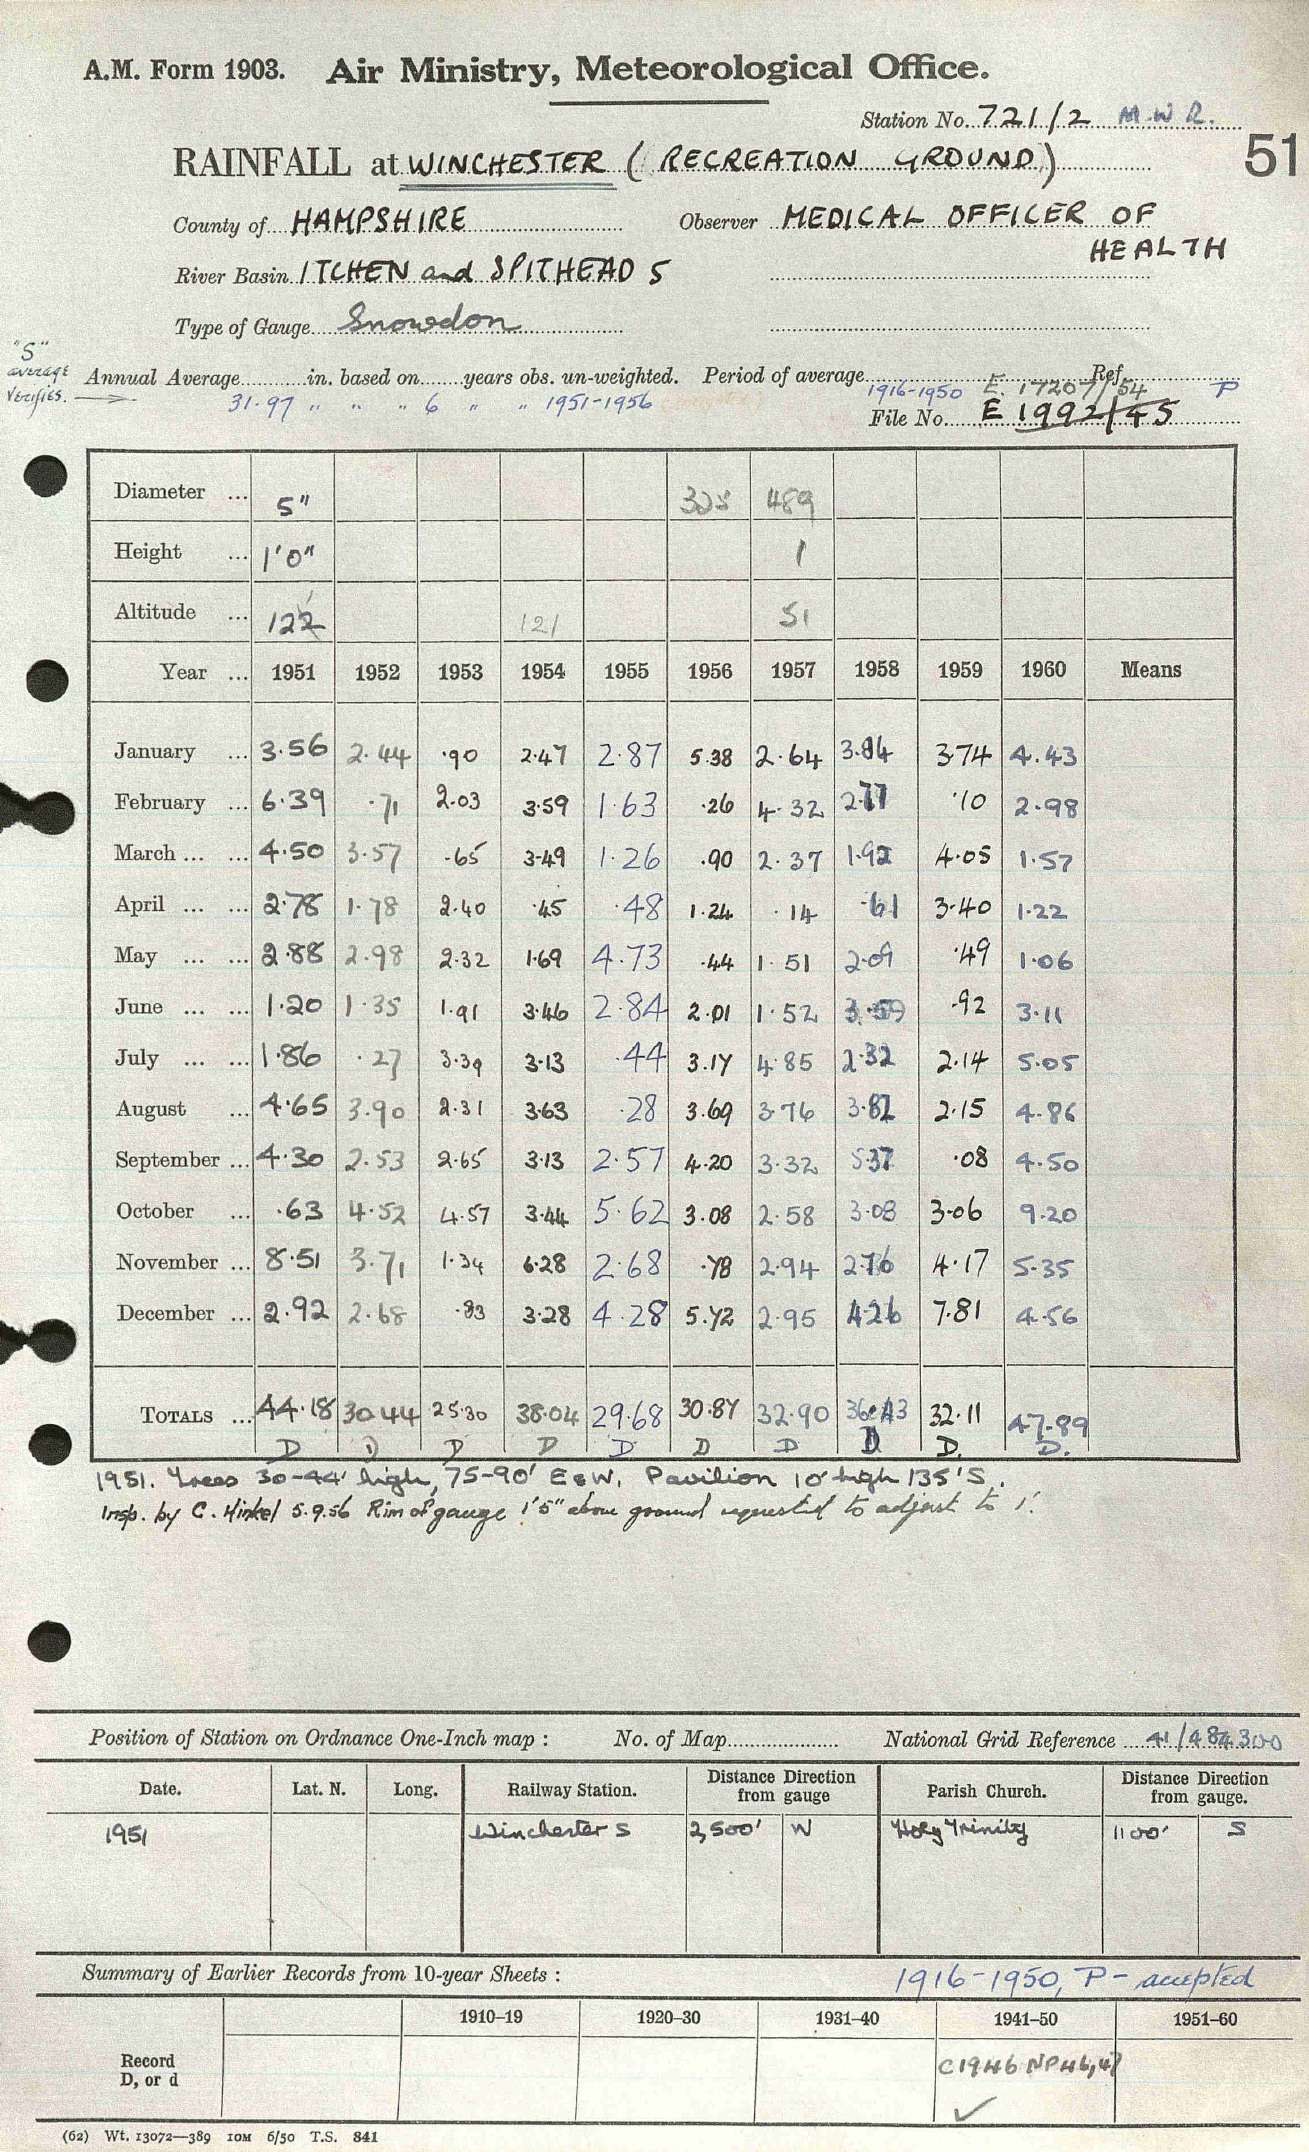 A.M. Form 1903. Air Ministry, Meteorological Office.
Station No. 721/2 M.W.R.
RAINFALL at WINCHESTER (RECREATION GROUND) 51
County of HAMPSHIRE Observer MEDICAL OFFICER OF
HEALTH
River Basin ITCHEN and SPITHEAD 5
Type of Gauge Snowdon
"S"
average
verifies.
Annual Average in. based on years obs. un-weighted. Period of average Ref.
31.97 " " " 6 " " 1951-1956 1916-1950 E. 17207/54 P
File No. E 1992/45
Diameter ... 5" 325 489
Height ... 1'0" 1
Altitude ... 122 121 51
Year ... 1951 1952 1953 1954 1955 1956 1957 1958 1959 1960 Means
January ... 3.56 2.44 .90 2.47 2.87 5.38 2.64 3.84 3.74 4.43
February ... 6.39 .71 2.03 3.59 1.63 .26 4.32 2.77 .10 2.98
March ... ... 4.50 3.57 .65 3.49 1.26 .90 2.37 1.92 4.05 1.57
April ... ... 2.78 1.78 2.40 .45 .48 1.24 .14 .61 3.40 1.22
May ... ... 2.88 2.98 2.32 1.69 4.73 .44 1.51 2.09 .49 1.06
June ... ... 1.20 1.35 1.91 3.46 2.84 2.01 1.52 3.59 .92 3.11
July ... ... 1.86 .27 3.39 3.13 .44 3.17 4.85 2.32 2.14 5.05
August ... 4.65 3.90 2.31 3.63 .28 3.69 3.76 3.82 2.15 4.86
September ... 4.30 2.53 2.65 3.13 2.57 4.20 3.32 5.37 .08 4.50
October ... .63 4.52 4.57 3.44 5.62 3.08 2.58 3.08 3.06 9.20
November ... 8.51 3.71 1.34 6.28 2.68 .78 2.94 2.76 4.17 5.35
December ... 2.92 2.68 .83 3.28 4.28 5.72 2.95 4.26 7.81 4.56
TOTALS ... 44.18 30.44 25.30 38.04 29.68 30.87 32.90 36.43 32.11 47.89
D D D D D D D D D. D.
1951. Trees 30-44' high, 75-90' E & W, Pavilion 10' high 135' S.
Insp. by C. Hinkel 5.9.56 Rim of gauge 1'5" above ground requested to adjust to 1'.
Position of Station on Ordnance One-Inch map : No. of Map National Grid Reference 41/484300
Date. Lat. N. Long. Railway Station. Distance from gauge Direction Parish Church. Distance from gauge. Direction
1951 Winchester S 2,500' W Holy Trinity 1100' S
Summary of Earlier Records from 10-year Sheets : 1916-1950, P - accepted
1910–19 1920–30 1931–40 1941–50 1951–60
Record
D, or d
C1946 NP46,47
(62) Wt. 13072—389 10M 6/50 T.S. 841